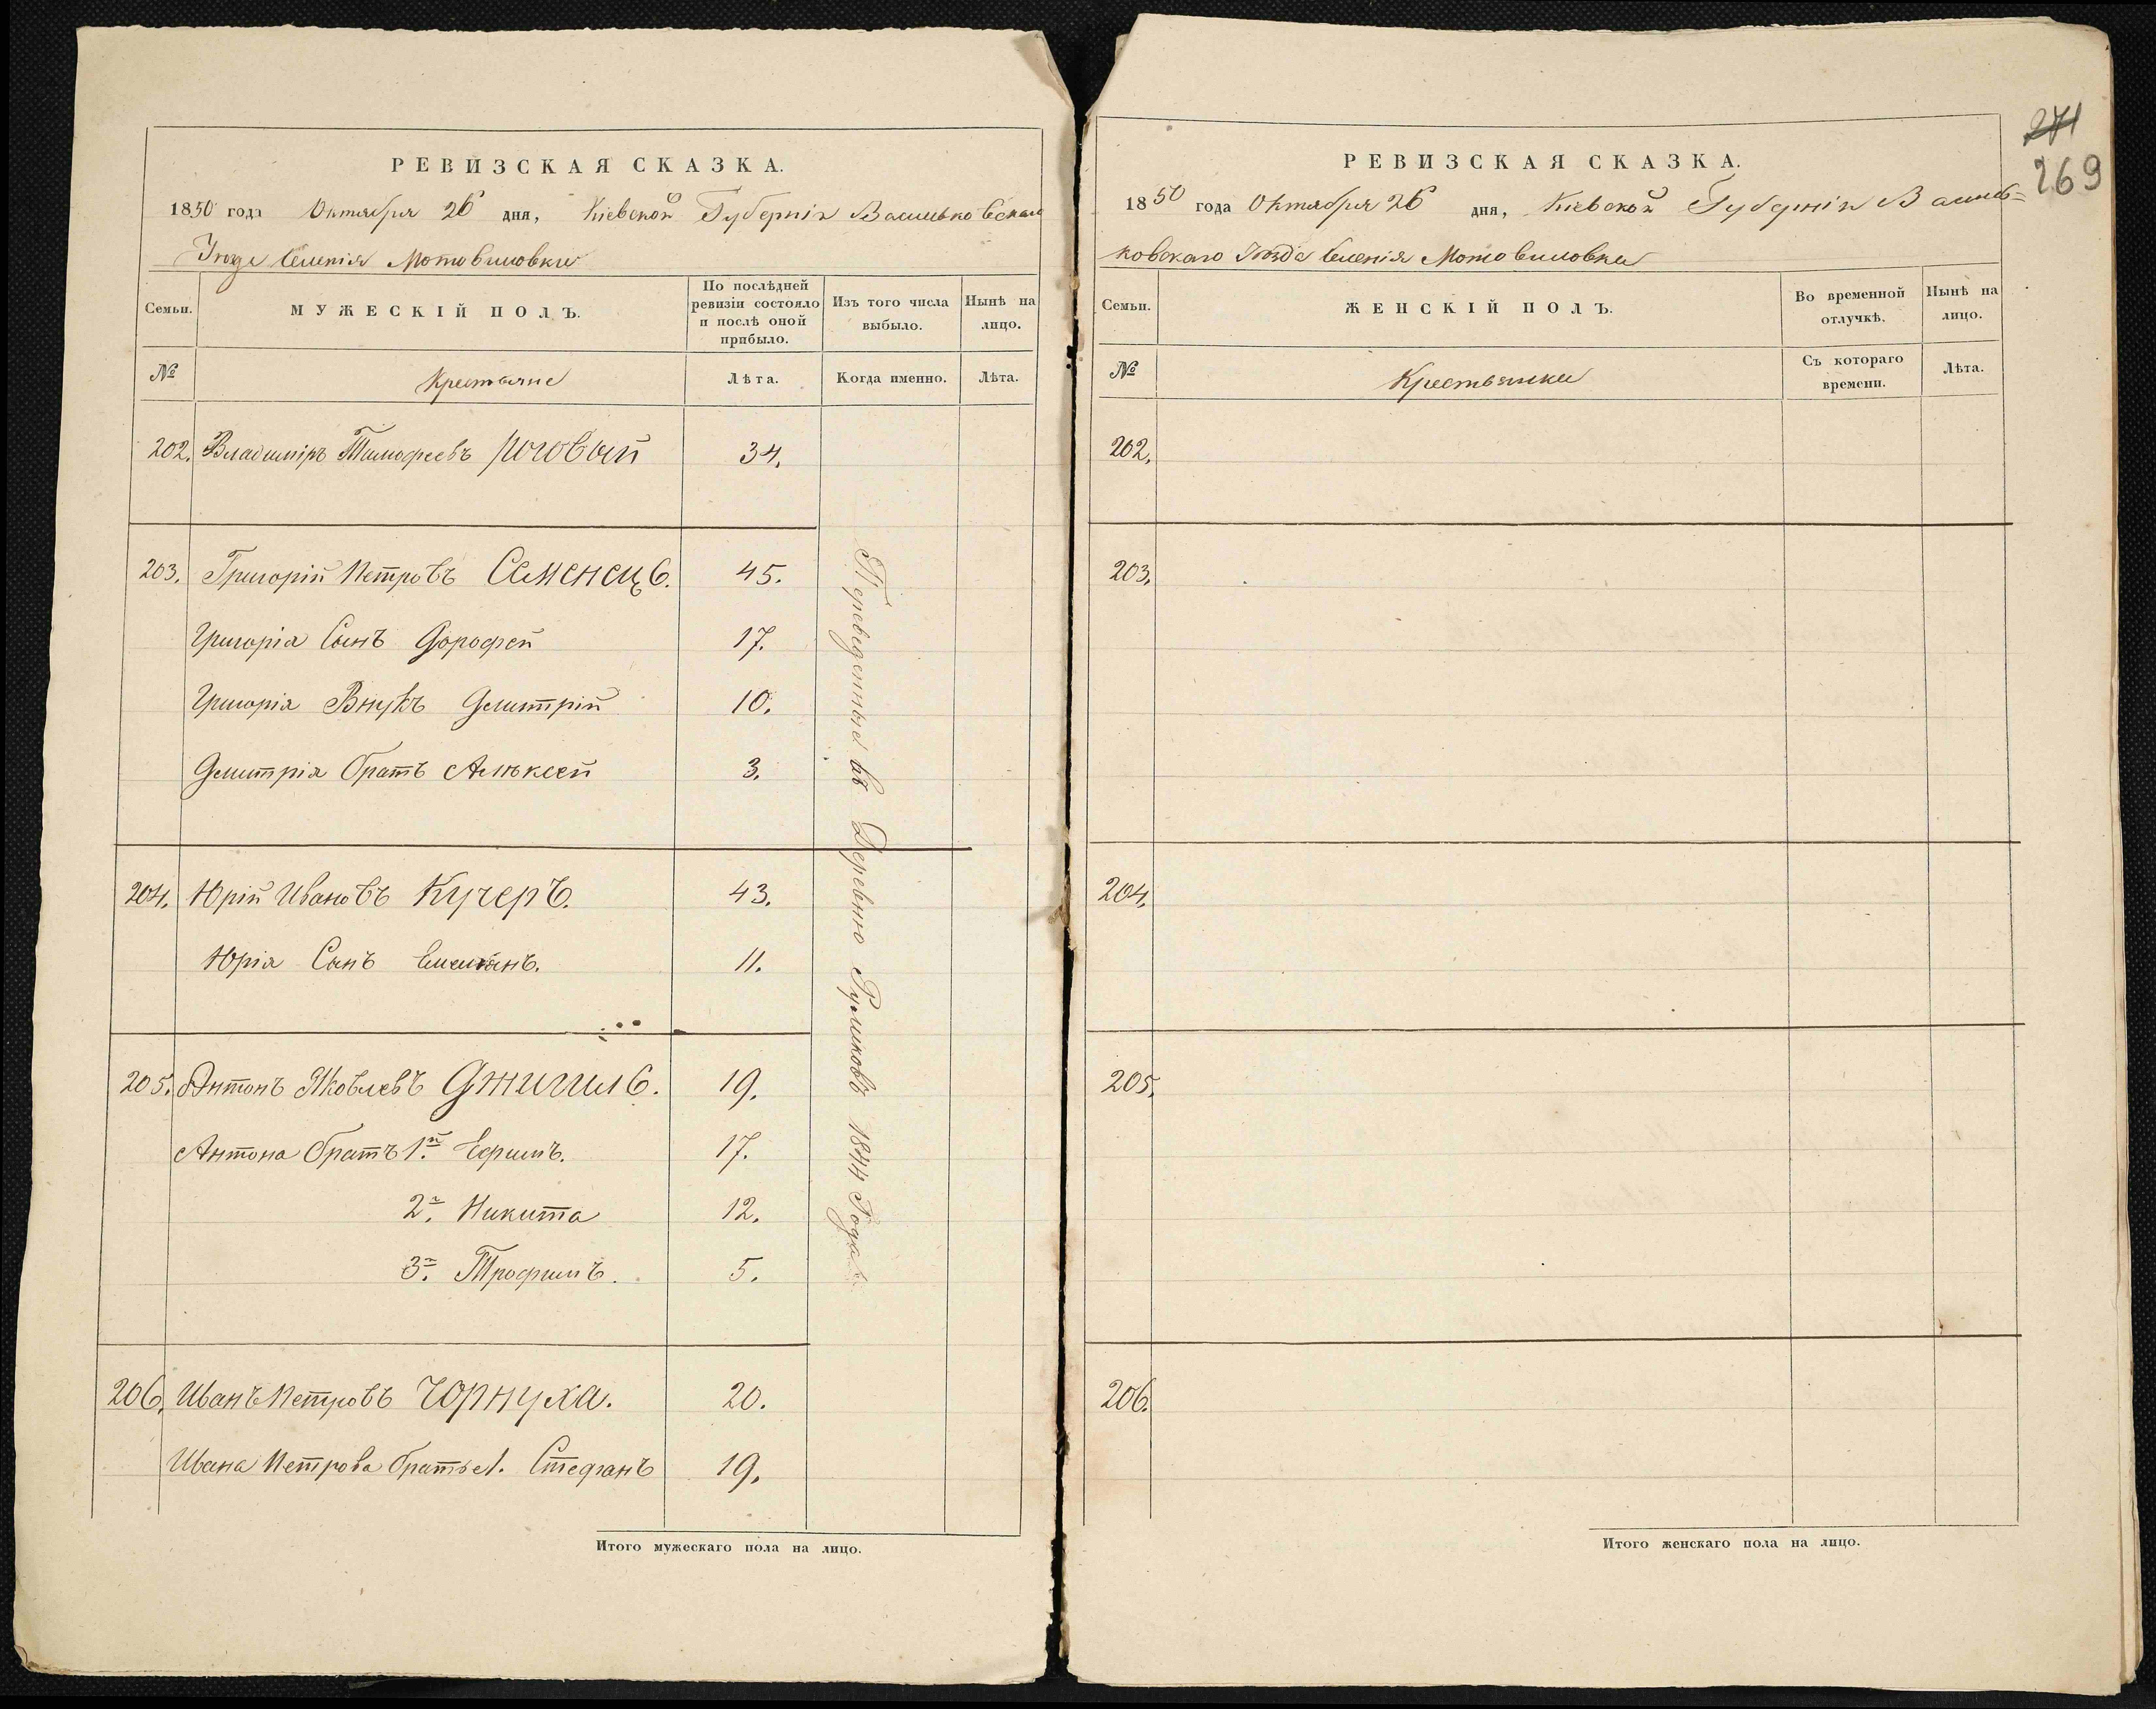 РЕВИЗСКАЯ СКАЗКА.
1850 года Октября 26 дня, Кіевской Губерніи Васильковскаго
Уезда Селенія Мотовиловки
Семьи.
МУЖЕСКІЙ ПОЛЪ.
По послѣдней ревизіи состояло и послѣ оной прибыло.
Изъ того числа выбыло.
Нынѣ на лицо.
№
Крестьяне
Лѣта.
Когда именно.
Лѣта.
202. Владиміръ Тимофеевъ Роговый 34.
203. Григорій Петровъ Семенець. 45.
Григорія Сынъ Дорофей 17.
Григорія Внукъ Дмитрій 10.
Дмитрія братъ Алексей 3.
204. Юрій Ивановъ Кучеръ. 43.
Юрія Сынъ Емельянъ. 11.
205. Антонъ Яковлевъ Джигиль. 19.
Антона братъ 1й. Ефимъ. 17.
2й. Никита 12.
3й. Трофимъ. 5.
206. Иванъ Петровъ Чорнуха. 20.
Ивана Петрова братья 1. Стефанъ 19.
Переведенные въ Деревню 1844 Года.
Итого мужескаго пола на лицо.
271
269
РЕВИЗСКАЯ СКАЗКА.
1850 года Октября 26 дня, Кіевской Губерніи Василь=
ковскаго Уезда Селенія Мотовиловки
Семьи.
ЖЕНСКІЙ ПОЛЪ.
Во временной отлучкѣ.
Нынѣ на лицо.
№
Крестьянки
Съ котораго времени.
Лѣта.
202.
203.
204.
205.
206.
Итого женскаго пола на лицо.